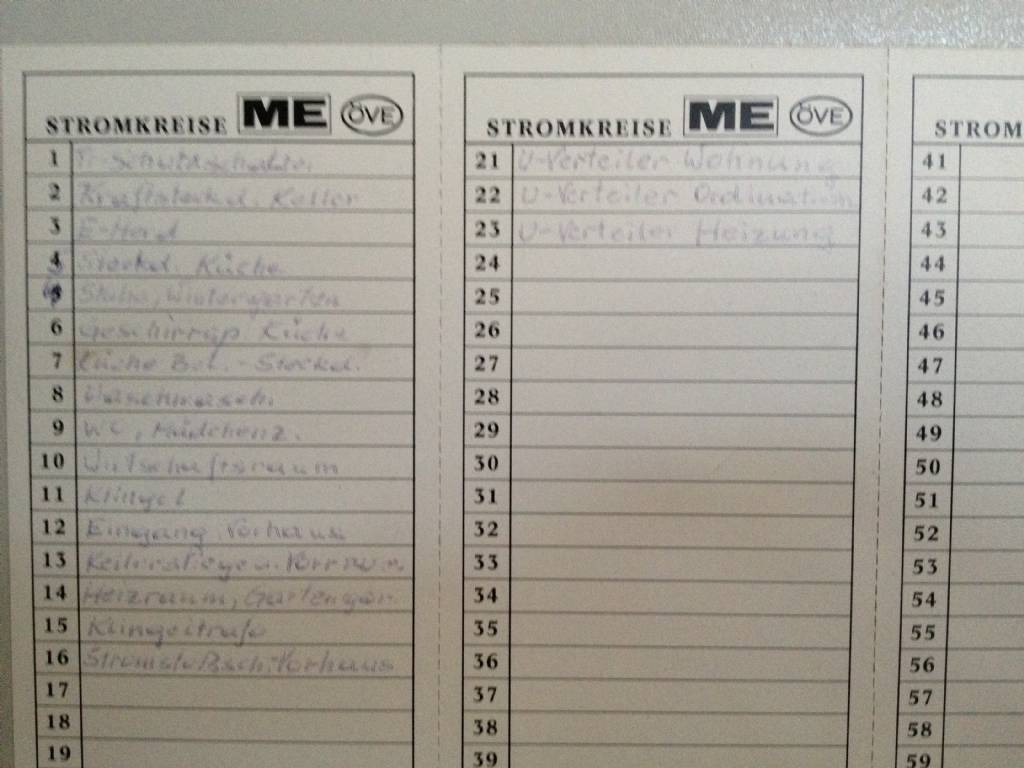 STROMKREISE ME ÖVE
1 Fi-Schutzschalter
2 Kraftsteckd. Keller
3 E-Herd
4 Steckd. Küche
5 Stube, Wintergarten
6 Geschirrsp Küche
7 Küche Bel. - Steckd.
8 Waschmasch.
9 WC, Mädchenz.
10 Wirtschaftsraum
11 Klingel
12 Eingang, Vorhaus
13 Kellerstiege u.
14 Heizraum, Gartengar.
15 Klingeltrafo
16 Stromstoßsch. Vorhaus
17
18
19
STROMKREISE ME ÖVE
21 U-Verteiler Wohnung
22 U-Verteiler Ordination
23 U-Verteiler Heizung
24
25
26
27
28
29
30
31
32
33
34
35
36
37
38
39
STROM
41
42
43
44
45
46
47
48
49
50
51
52
53
54
55
56
57
58
59